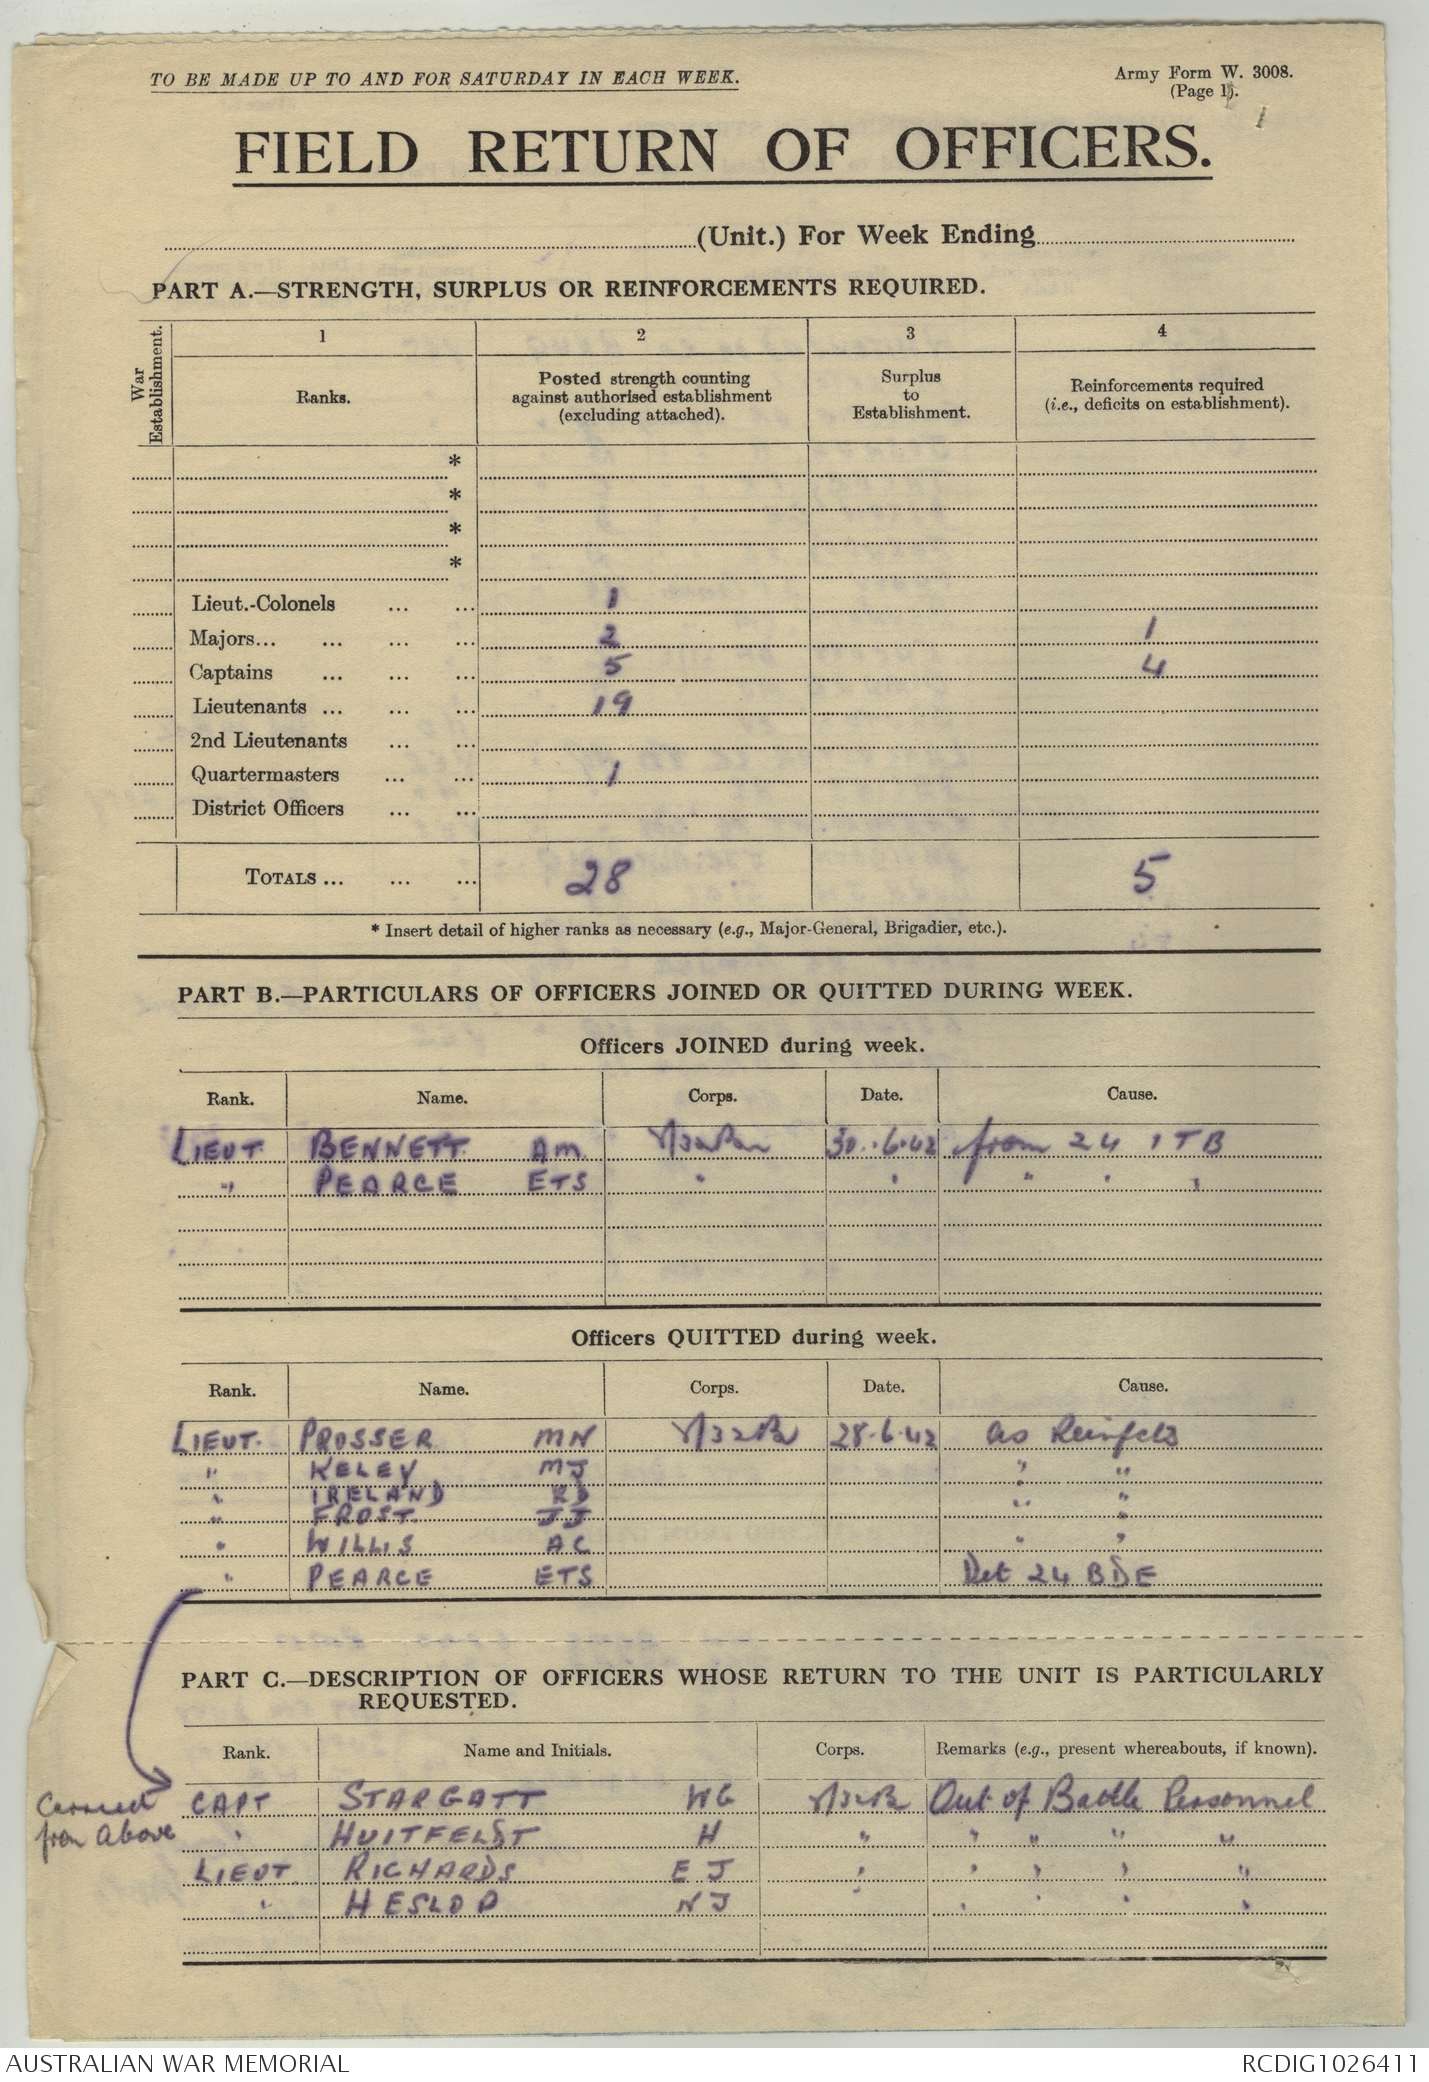 TO BE MADE UP TO AND FOR SATURDAY IN EACH WEEK.
Army Form W. 3008.
(Page 1).
1
FIELD RETURN OF OFFICERS.
(Unit.) For Week Ending
PART A.—STRENGTH, SURPLUS OR REINFORCEMENTS REQUIRED.
War Establishment.
1 2 3 4
Ranks. Posted strength counting against authorised establishment (excluding attached). Surplus to Establishment. Reinforcements required (i.e., deficits on establishment).
*
*
*
*
Lieut.-Colonels ... ... 1
Majors... ... ... ... 2 1
Captains ... ... ... 5 4
Lieutenants ... ... ... 19
2nd Lieutenants ... ...
Quartermasters ... ... 1
District Officers ... ...
TOTALS ... ... ... 28 5
* Insert detail of higher ranks as necessary (e.g., Major-General, Brigadier, etc.).
PART B.—PARTICULARS OF OFFICERS JOINED OR QUITTED DURING WEEK.
Officers JOINED during week.
Rank. Name. Corps. Date. Cause.
LIEUT BENNETT AM. 30.6.42 from 24 ITB
" PEARCE ETS " " " " "
Officers QUITTED during week.
Rank. Name. Corps. Date. Cause.
LIEUT. PROSSER MN 28.6.42 as Reinfcts
" KELEY MJ " "
" IRELAND RD " "
" FROST JJ " "
" WILLIS AC " "
" PEARCE ETS Det 24 BDE
PART C.—DESCRIPTION OF OFFICERS WHOSE RETURN TO THE UNIT IS PARTICULARLY
REQUESTED.
Rank. Name and Initials. Corps. Remarks (e.g., present whereabouts, if known).
from above
CAPT STARGATT WG Out of Battle Personnel
" HUITFELDT H " " " " "
LIEUT RICHARDS EJ " " " " "
" HESLOP NJ " " " " "
AUSTRALIAN WAR MEMORIAL
RCDIG1026411